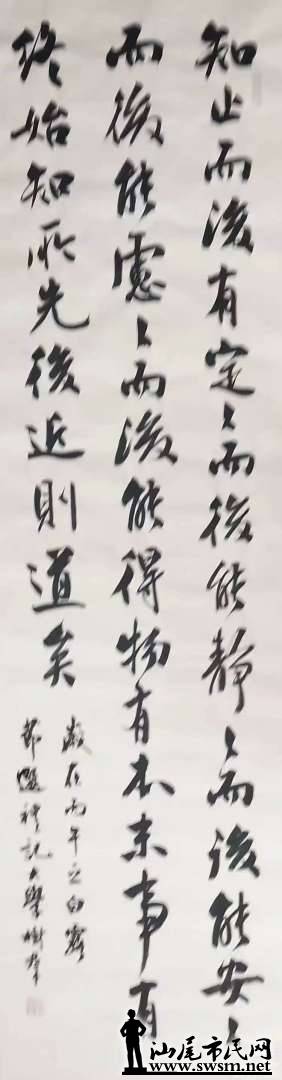 知止而後有定々而後能靜々而後能安々
而後能慮々而後能得物有本末事有
終始知所先後近則道矣
歲在丙午之白露
節禮記大學樹
汕尾市民网
www.swsm.net